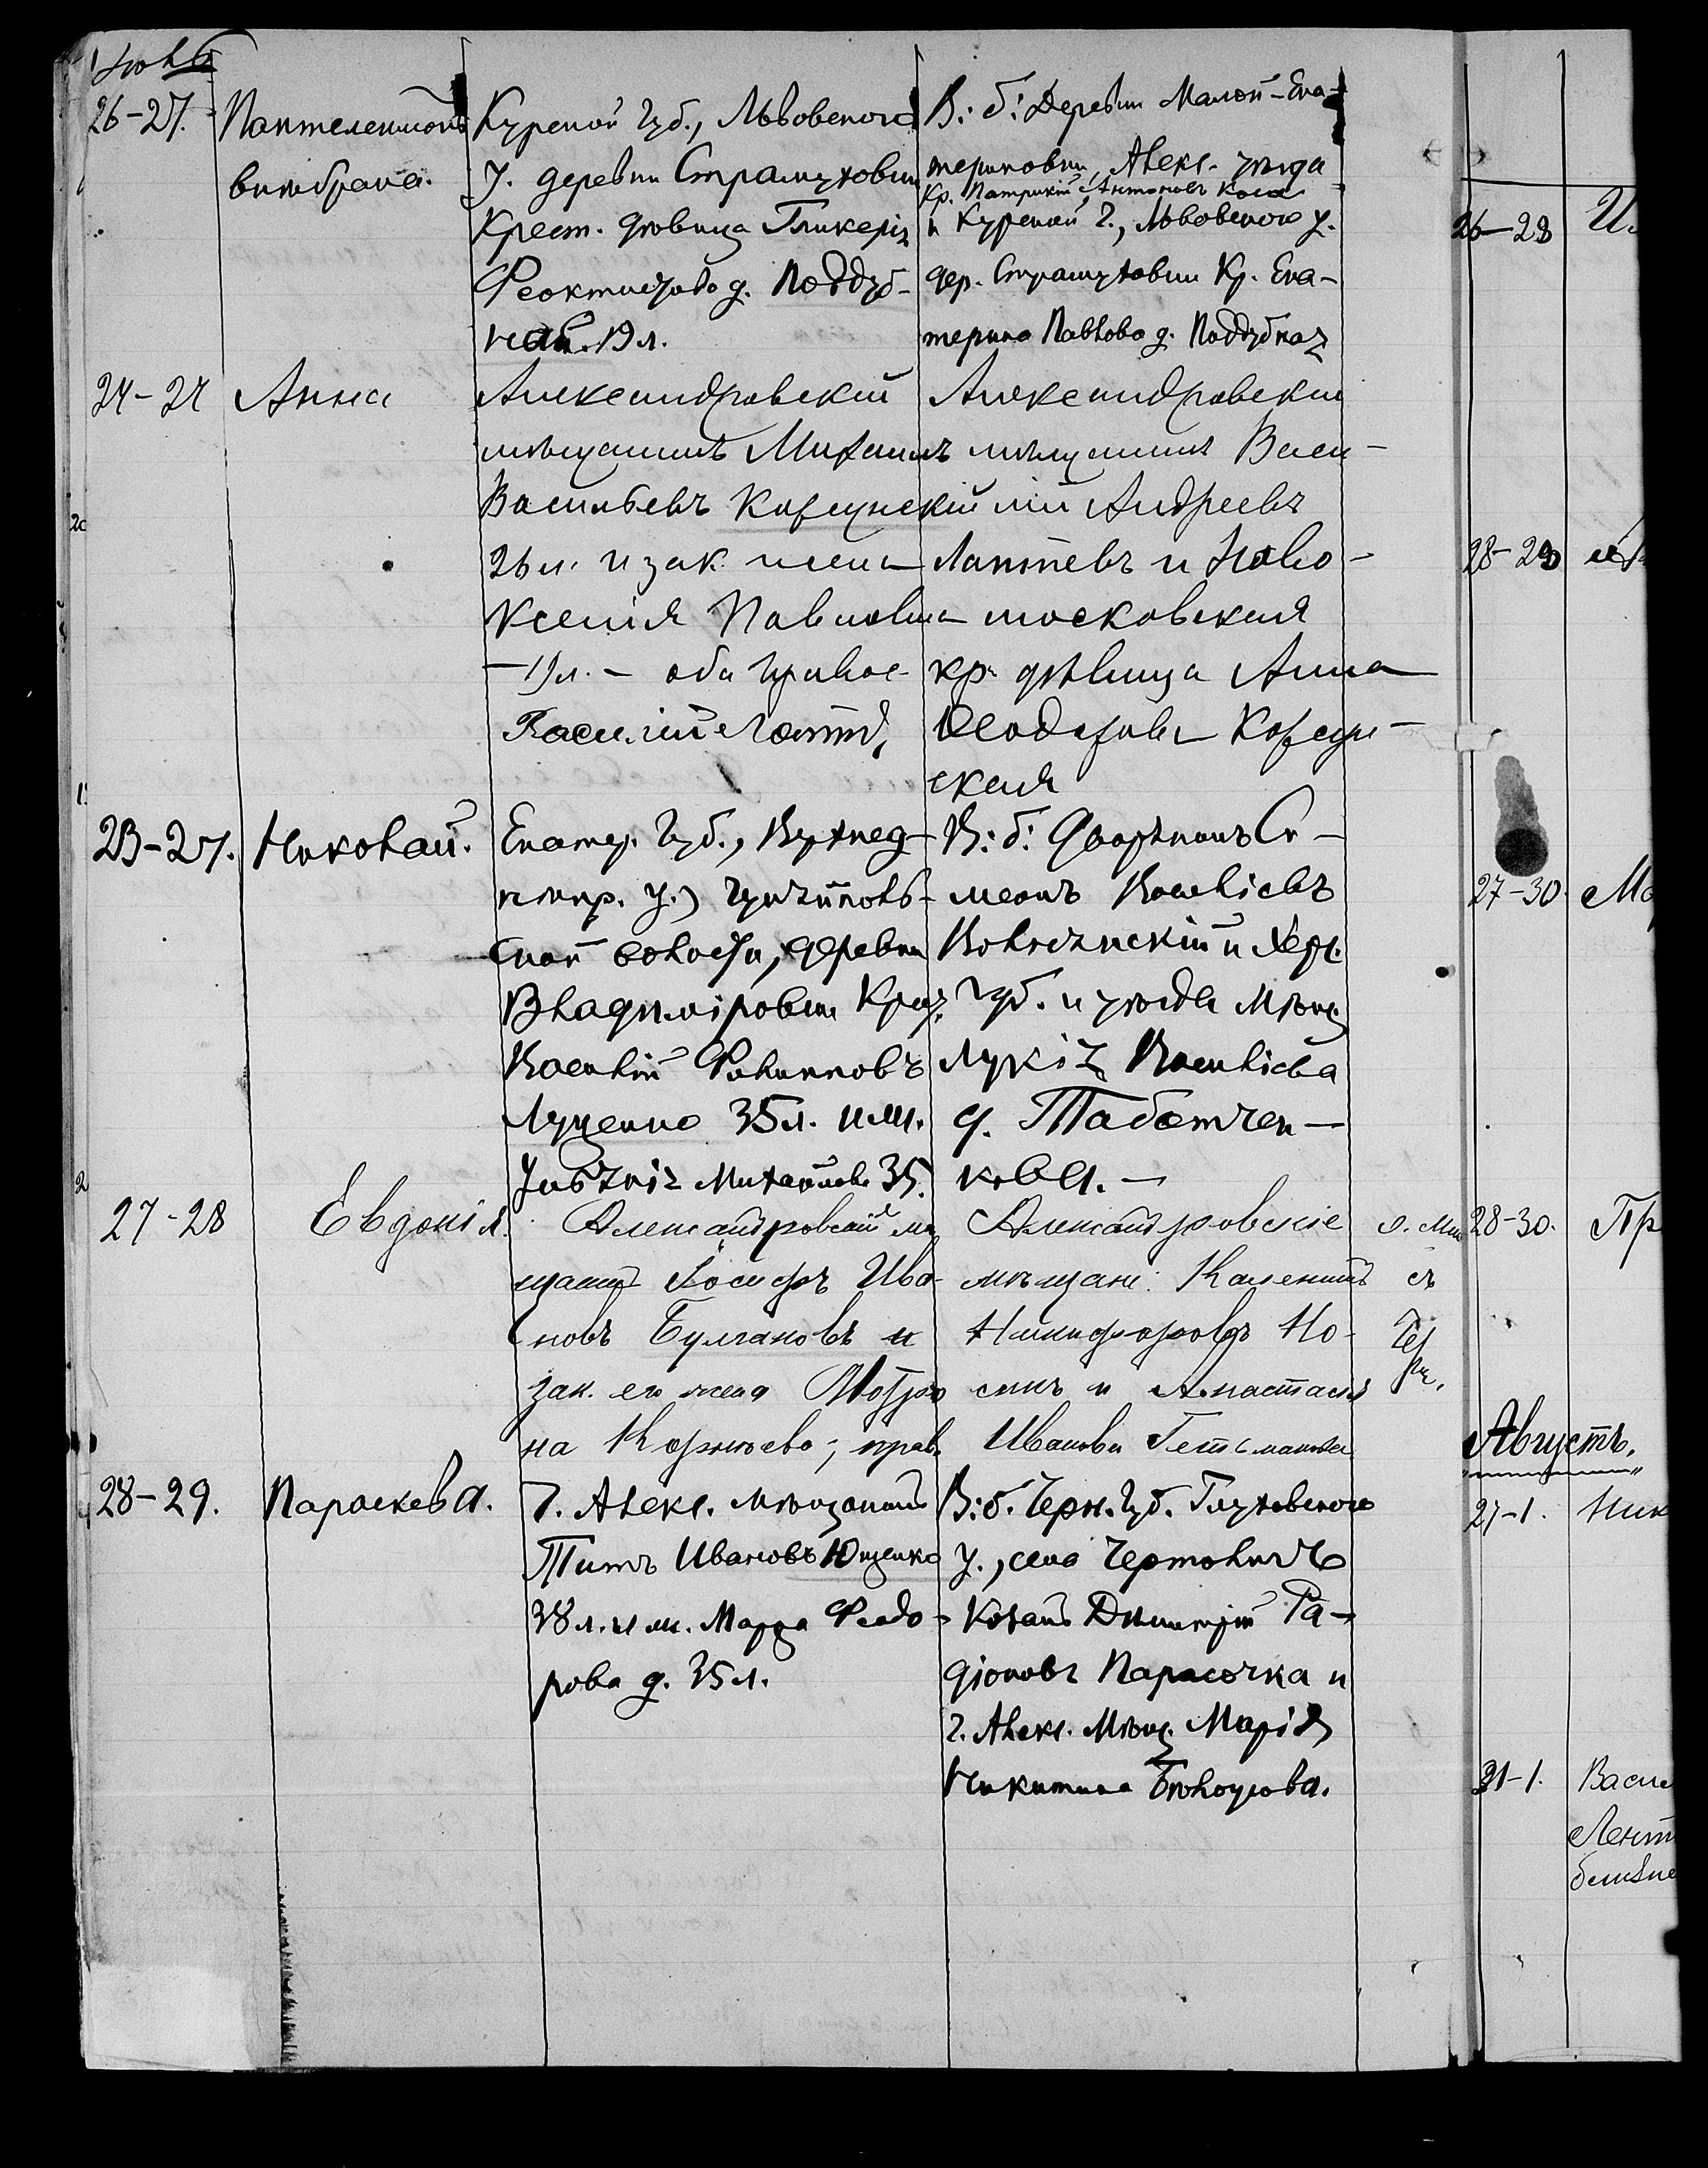 Іюль
26-27. Пантелеимонъ
внѣбрачн.
Курской губ., Льговскаго
у. деревни Страмуховки
Крест. дѣвица Гликерія
Феоктистова д. Поддуб-
ная 19 л.
В: б: Деревни Малой-Ека-
териновки, Алекс. уѣзда
Кр. Патрикій Антоновъ Коса
и Курской г., Льговскаго у.
дер. Страмуховки Кр. Ека-
терина Павлова д. Поддубная
24-27 Анна
Александровскій
мѣщанинъ Михаилъ
Васильевъ Корсунскій
26 л. и зак. жена
Ксенія Павловна
19 л. - оба правос.
Александровскій
мѣщанинъ Васи-
лій Андреевъ
Лаптевъ и Ново-
московская
кр. дѣвица Анна
Ѳеодорова Корсун-
ская
23-27. Николай.
Екатер. губ., Верхнед-
непр. у.,
волости, деревни
Владиміровки Крест.
Василій Филипповъ
Луценко 35 л. и ж.
Михайлова 35.
В: б: Дворянинъ Си-
меонъ Васильевъ
и Хер.
губ. и уѣзда Мѣщ.
Лукія Васильева
д.
27-28 Евдокія.
Александровскій мѣ
щанинъ Іосифъ Ива-
новъ Булгаковъ и
зак. его жена Матро
на Корнѣева; прав.
Александровскіе
мѣщане: Каленикъ
Никифоровъ Но-
сикъ и Анастасія
Иванова Гетьманова
съ
28-29. Параскева.
Г. Алекс. Мѣщанинъ
Титъ Ивановъ Ющенко
38 л. и ж. Марѳа Феодо-
рова д. 35 л.
В: б. Черн. губ. Глуховскаго
у., села
Козакъ Димитрій Ра-
діоновъ Парасочка и
г. Алекс. Мѣщ. Марія
Никитина Бѣлоусова.
26-28
28-29
27-30.
28-30. Пр
Августъ.
27-1. Ник
31-1.